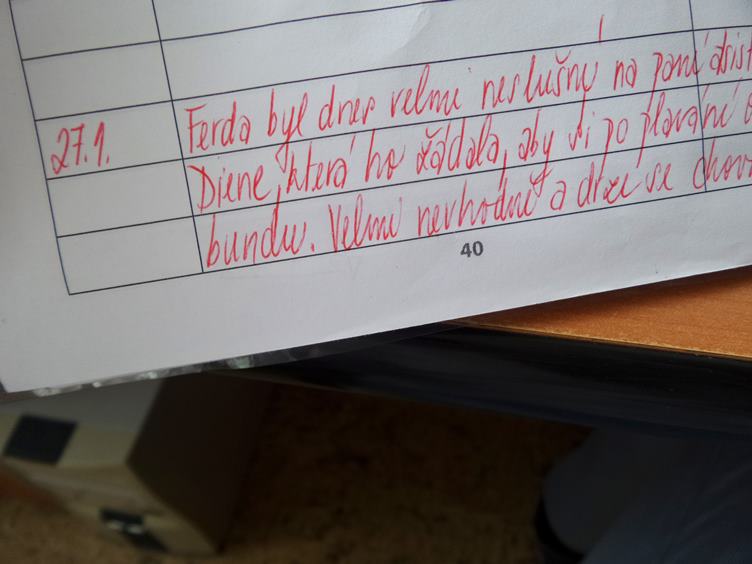 27.1. Ferda byl dnes velmi neslušný na paní asist
Diene, která ho žádala, aby si po plavání
bundu. Velmi nevhodně a drze se chov
40